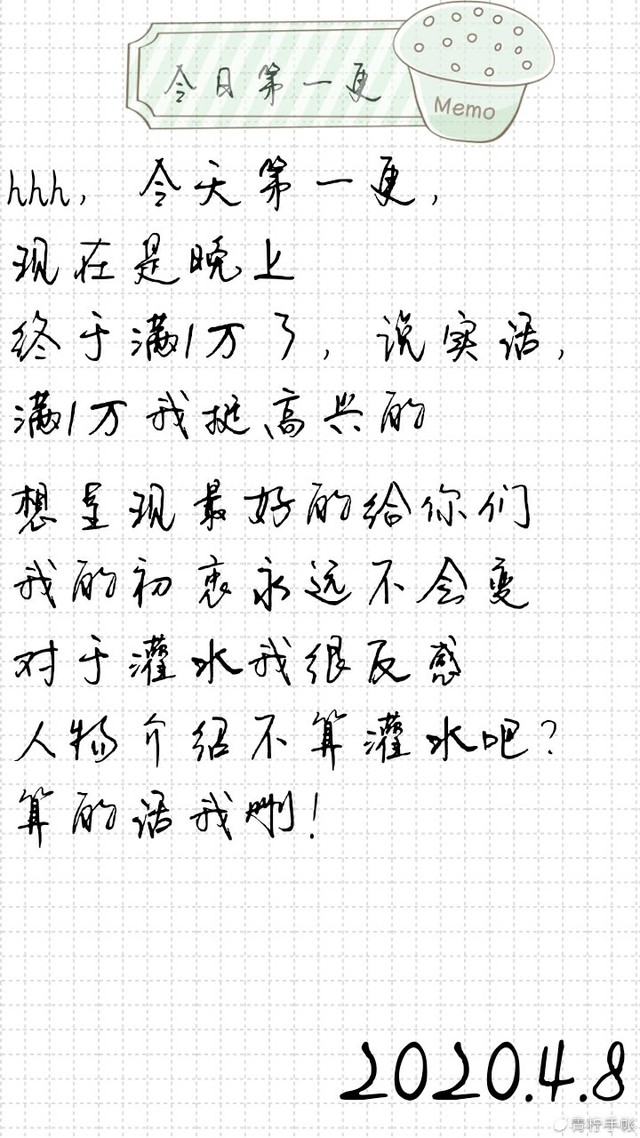 今日第一更
Memo
hhh，今天第一更，
现在是晚上
终于满1万了，说实话，
满1万我挺高兴的
想呈现最好的给你们
我的初衷永远不会变
对于灌水我很反感
人物介绍不算灌水吧？
算的话我删！
2020.4.8
青柠手帐